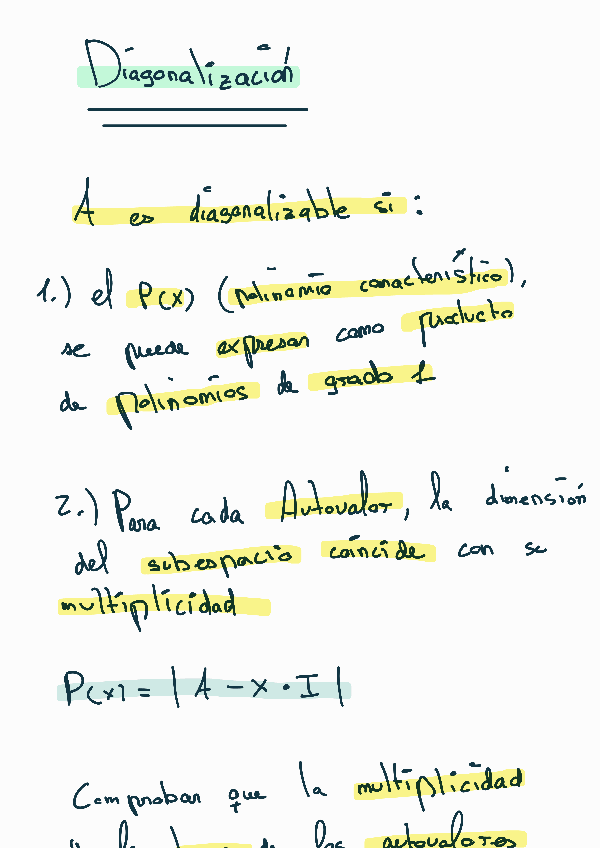 Diagonalización
A es diagonalizable si:
1.) el P(x) (polinomio característico),
se puede expresar como producto
de polinomios de grado 1
2.) Para cada Autovalor, la dimensión
del subespacio coincide con su
multiplicidad
P(x) = | A - x · I |
Comprobar que la multiplicidad
de los autovalores